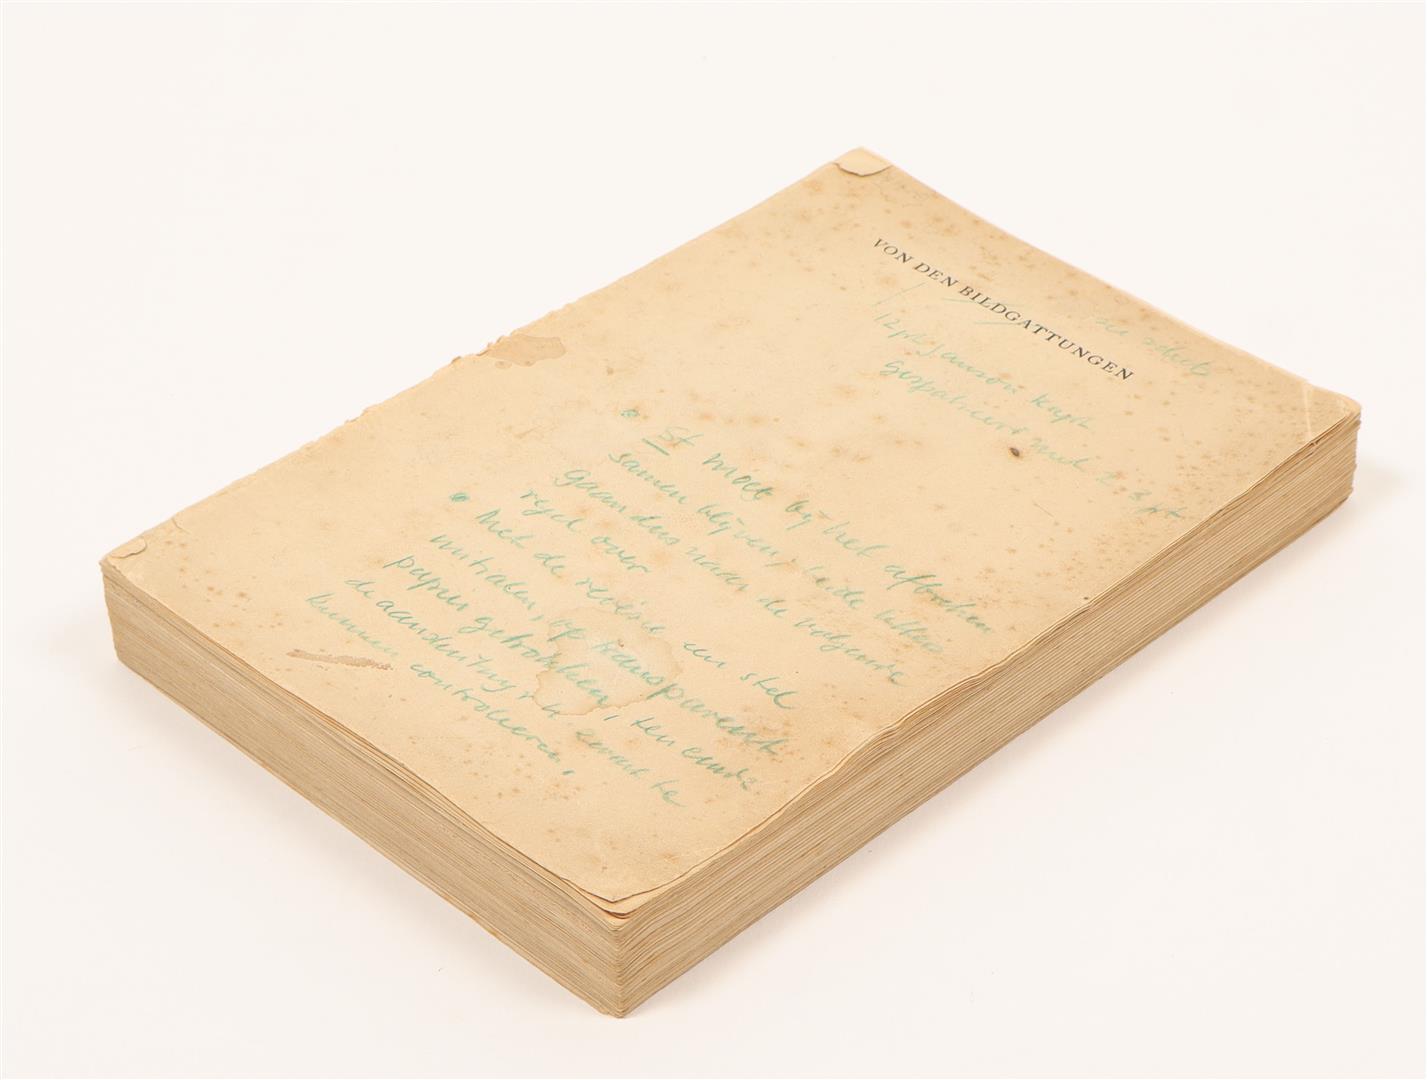 VON DEN BILDGATTUNGEN
12 pt Janson kapit
gespatieerd met 2 3 pt
St moet bij het afbreken
samen blijven, beide letters
gaan dus naar de volgende
regel over
Met de revisie een stel
initialen, op transparent
papier getrokken, ten einde
de aanduiding
kunnen controleren.